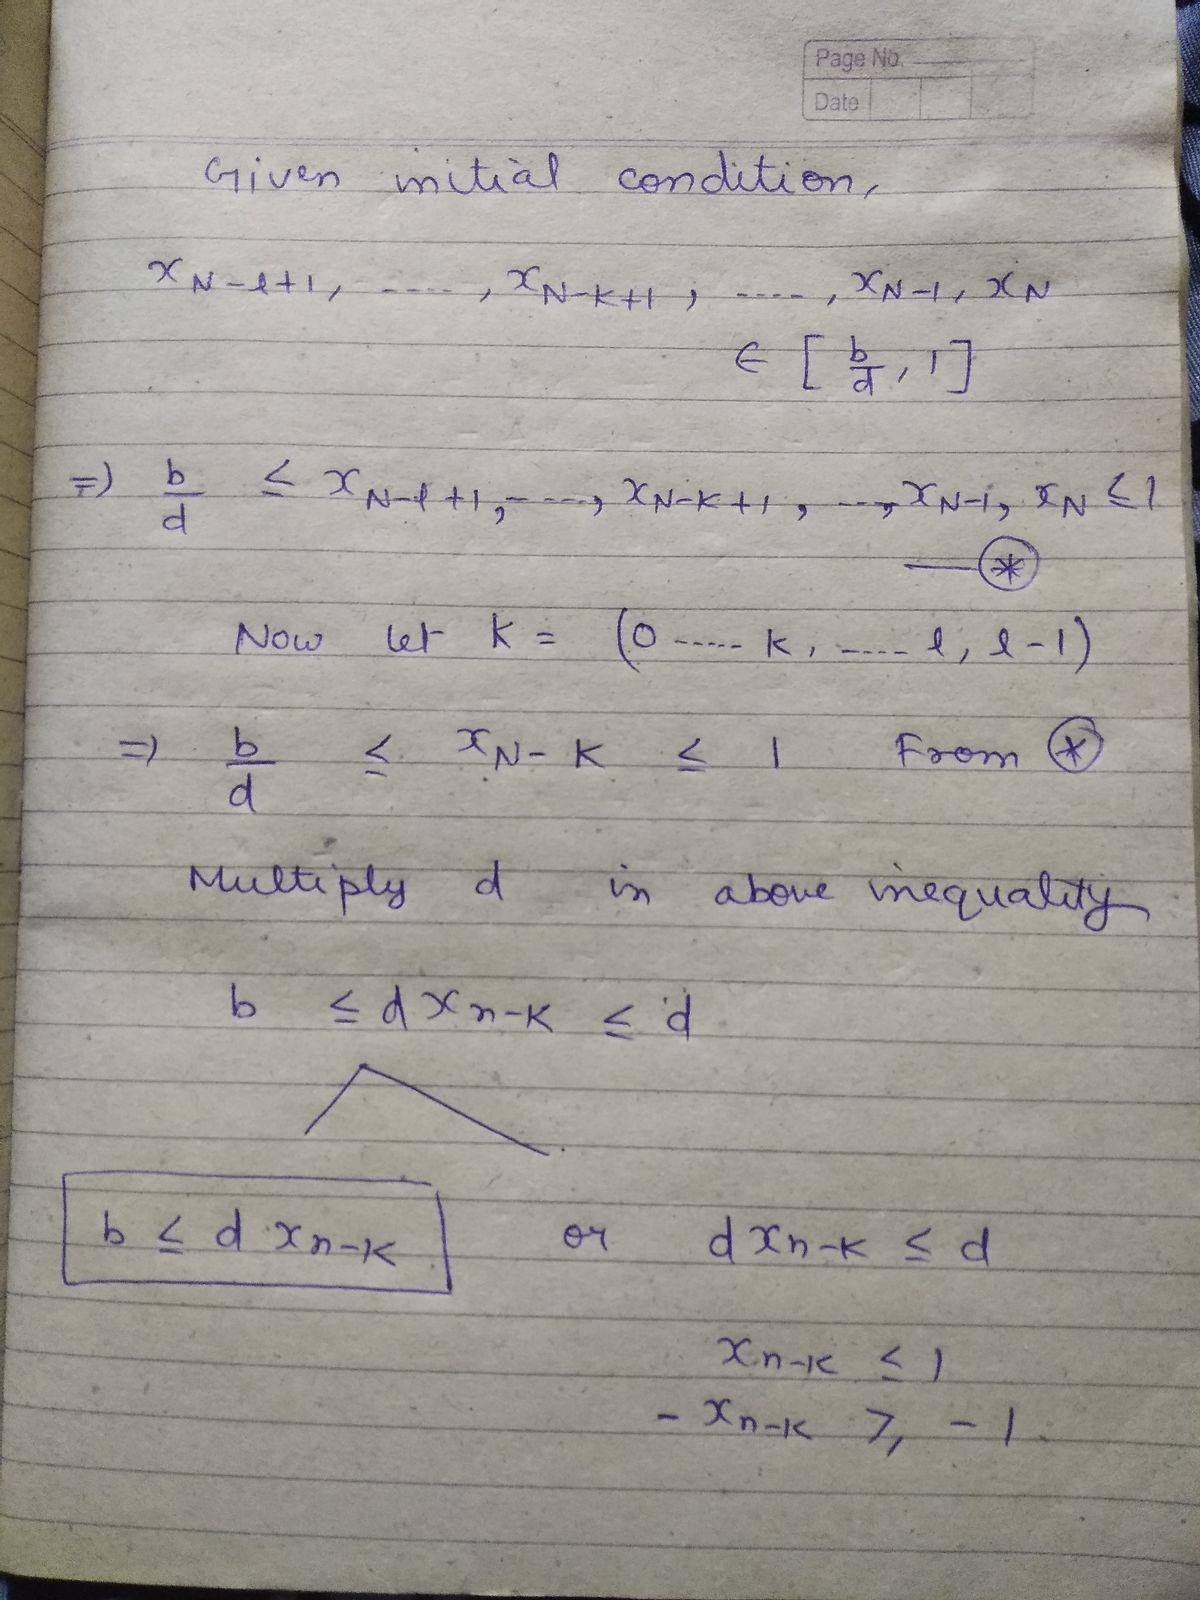 Page No.
Date
Given initial condition,
x_{N-l+1}, ....., x_{N-k+1}, ....., x_{N-1}, x_N
∈ [b/d, 1]
=) b/d ≤ x_{N-l+1}, ....., x_{N-k+1}, ..., x_{N-1}, x_N ≤ 1
—⊛
Now let k = (0 ..... k, ..... l, l-1)
=) b/d ≤ x_{N-k} ≤ 1 From ⊛
Multiply d in above inequality
b ≤ d x_{n-k} ≤ d
b ≤ d x_{n-k} or d x_{n-k} ≤ d
x_{n-k} ≤ 1
- x_{n-k} ≥, -1